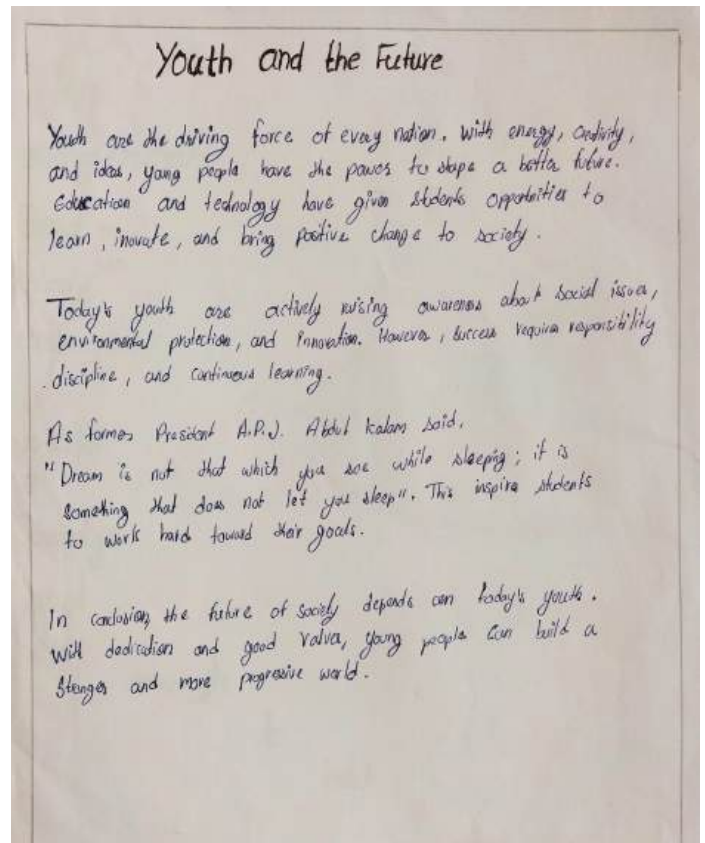 Youth and the Future
Youth are the driving force of every nation. With energy, creativity,
and ideas, young people have the power to shape a better future.
Education and technology have given students opportunities to
learn, inovate, and bring positive change to society.
Today's youth are actively raising awareness about social issues,
environmental protection, and innovation. However, success requires responsibility
discipline, and continuous learning.
As former President A.P.J. Abdul Kalam said,
"Dream is not that which you see while sleeping; it is
something that does not let you sleep". This inspire students
to work hard toward their goals.
In conclusion, the future of society depends on today's youth.
With dedication and good values, young people can build a
stronger and more progressive world.